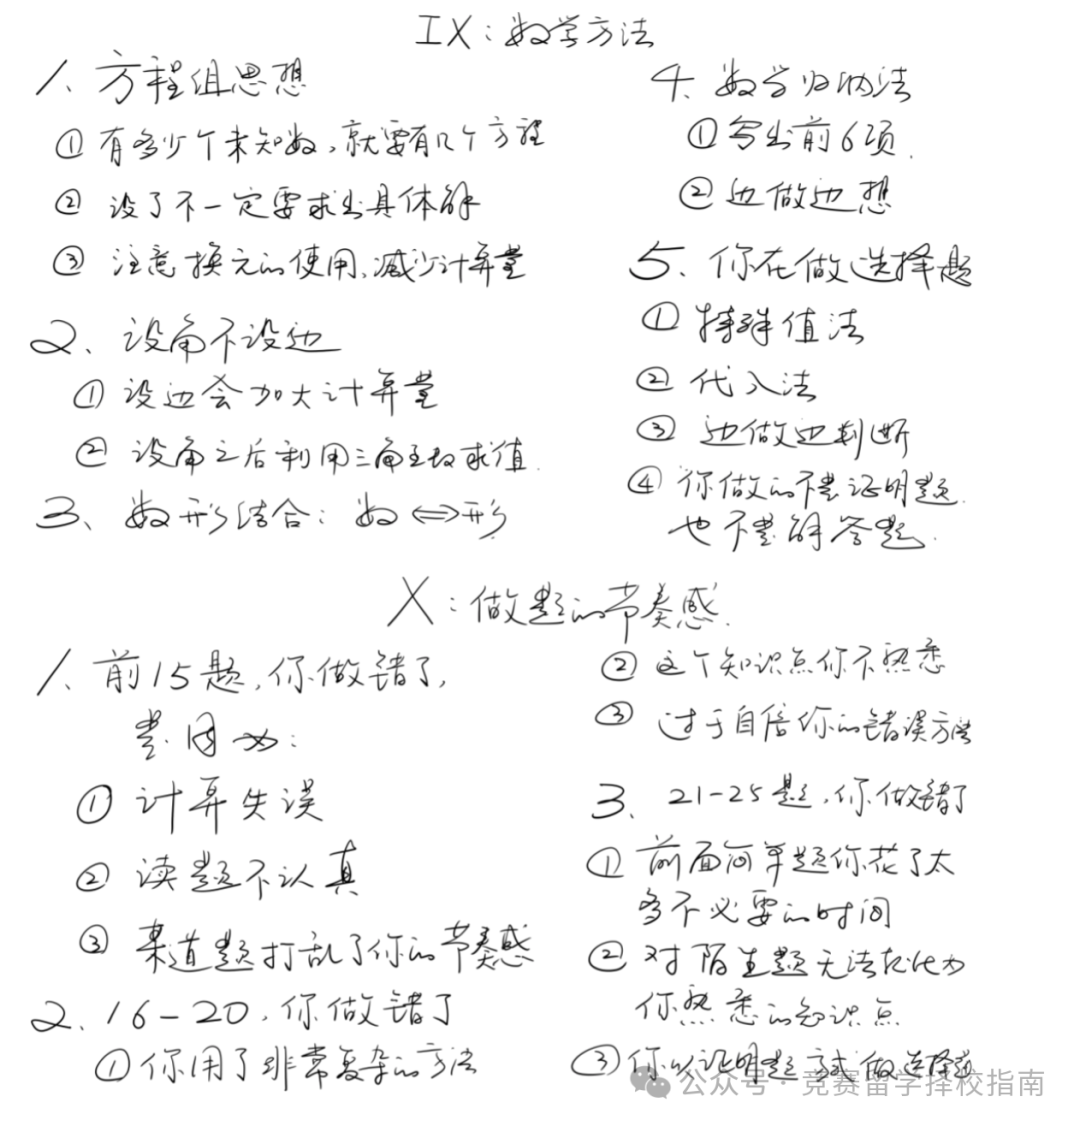 IX：数学方法
1、方程组思想
①有多少个未知数，就要有几个方程
②设了不一定要求出具体解
③注意换元的使用，减少计算量
2、设角不设边
①设边会加大计算量
②设角之后利用三角函数求值
3、数形结合：数⇔形
4、数学归纳法
①写出前6项.
②边做边想
5、你在做选择题
①特殊值法
②代入法
③边做边判断
④你做的不是证明题
也不是解答题.
X：做题的节奏感.
1、前15题，你做错了，
是因为：
①计算失误
②读题不认真
③某道题打乱了你的节奏感
2、16-20，你做错了
①你用了非常复杂的方法
②这个知识点你不熟悉
③过于自信你的错误方法
3、21-25题，你做错了
①前面简单题你花了太
多不必要的时间
②对陌生题无法转化为
你熟悉的知识点
③你以证明题方式做选择题
公众号·竞赛留学择校指南